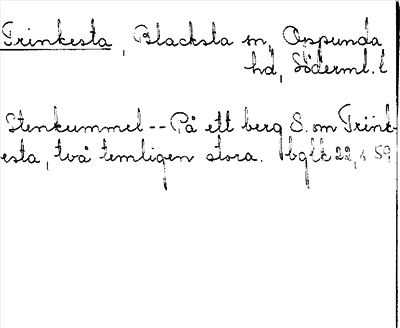 Trinkesta, Blacksta sn, Oppunda
hd, Söderml. l
Stenkummel -- På ett berg S. om Trink-
esta, två temligen stora. bglk 22, s 59